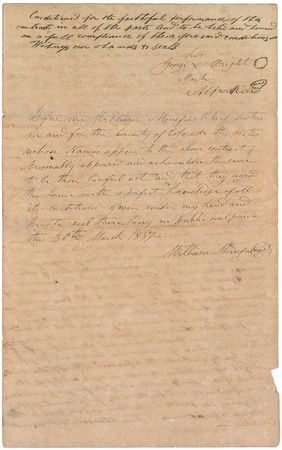 Conditioned for the faithful performance of this
contract in all of its parts and to be held and bound
on a full compliance of the aforesaid conditions
Witness our hands & seals
his
George X Wright
Mark
Alfred
Before me William Menefee Chief Justice
in and for the County of Colorado the parties
whose Names appear to the above contract
personally appeared and acknowledged the same
to be their lawful act and that they signed
the same with a perfect knowledge of all
its conditions given under my hand and
private seal there being no public seal provided
this 30th March 1837
William Menefee